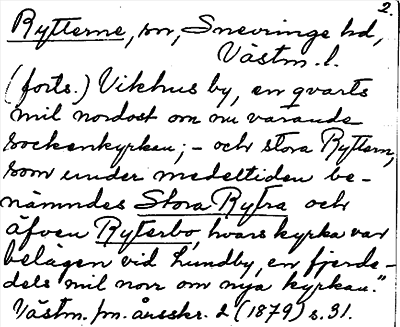 2.
Rytterne, sn, Snevringe hd,
Västm. l.
(forts.) Vikhus by, en qvarts
mil nordost om nu varande
sockenkyrkan; – och stora Ryttern,
som under medeltiden be-
nämndes Stora Rytra och
äfven Ryterbo, hvars kyrka var
belägen vid Lundby, en fjerde-
dels mil norr om nya kyrkan."
Västm. fm. årsskr. 2 (1879) s. 31.